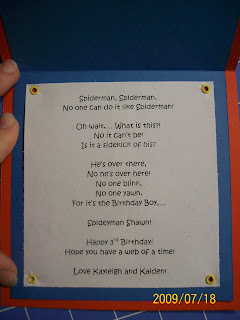 Spiderman, Spiderman,
No one can do it like Spiderman!
Oh wait.... What is this?!
No it can't be!
Is it a sidekick of his?
He's over there,
No he's over here!
No one blink,
No one yawn,
For it's the Birthday Boy....
Spideyman Shawn!
Happy 3rd Birthday!
Hope you have a web of a time!
Love Kayleigh and Kaiden!
2009/07/18